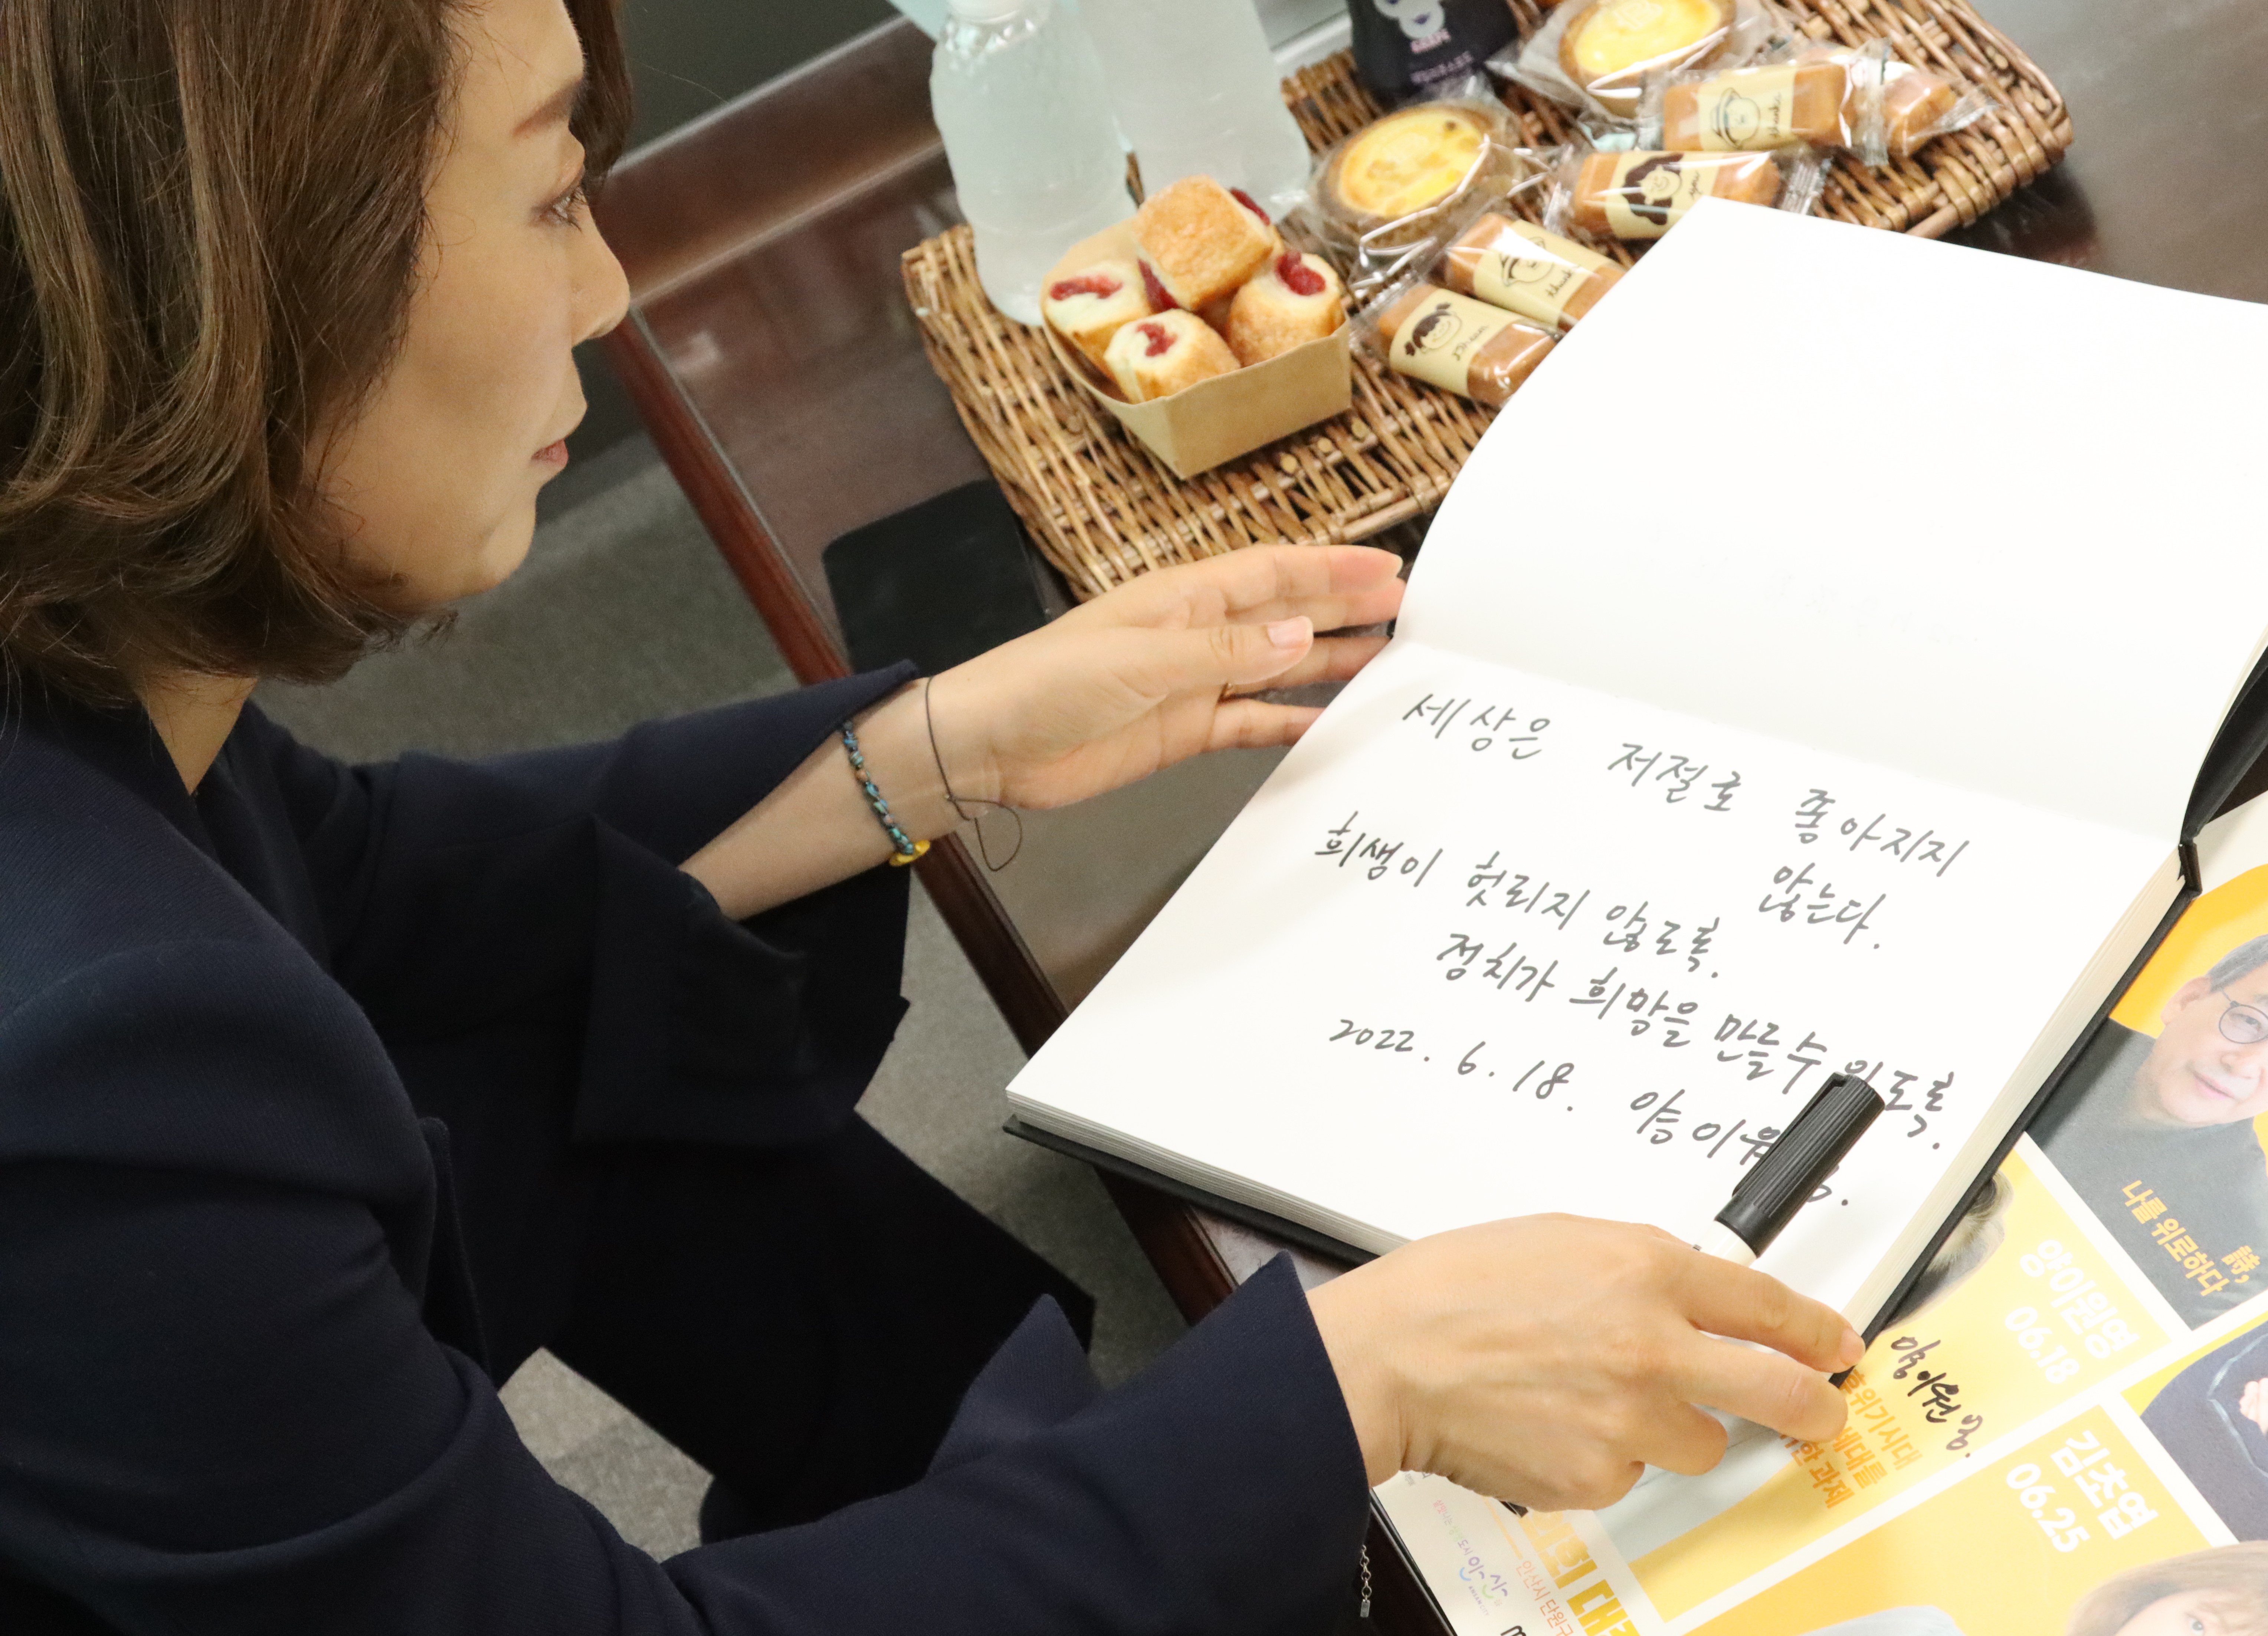 세상은 저절로 좋아지지
않는다.
희생이 헛되지 않도록.
정치가 희망을 만들수 있도록.
2022. 6. 18. 양이원영.
나를 위로하다
詩,
양이원영
06.18
양이원영.
기후위기시대
세대를
위한 과제
김초엽
06.25
안산시 단원구
thank
you
thank